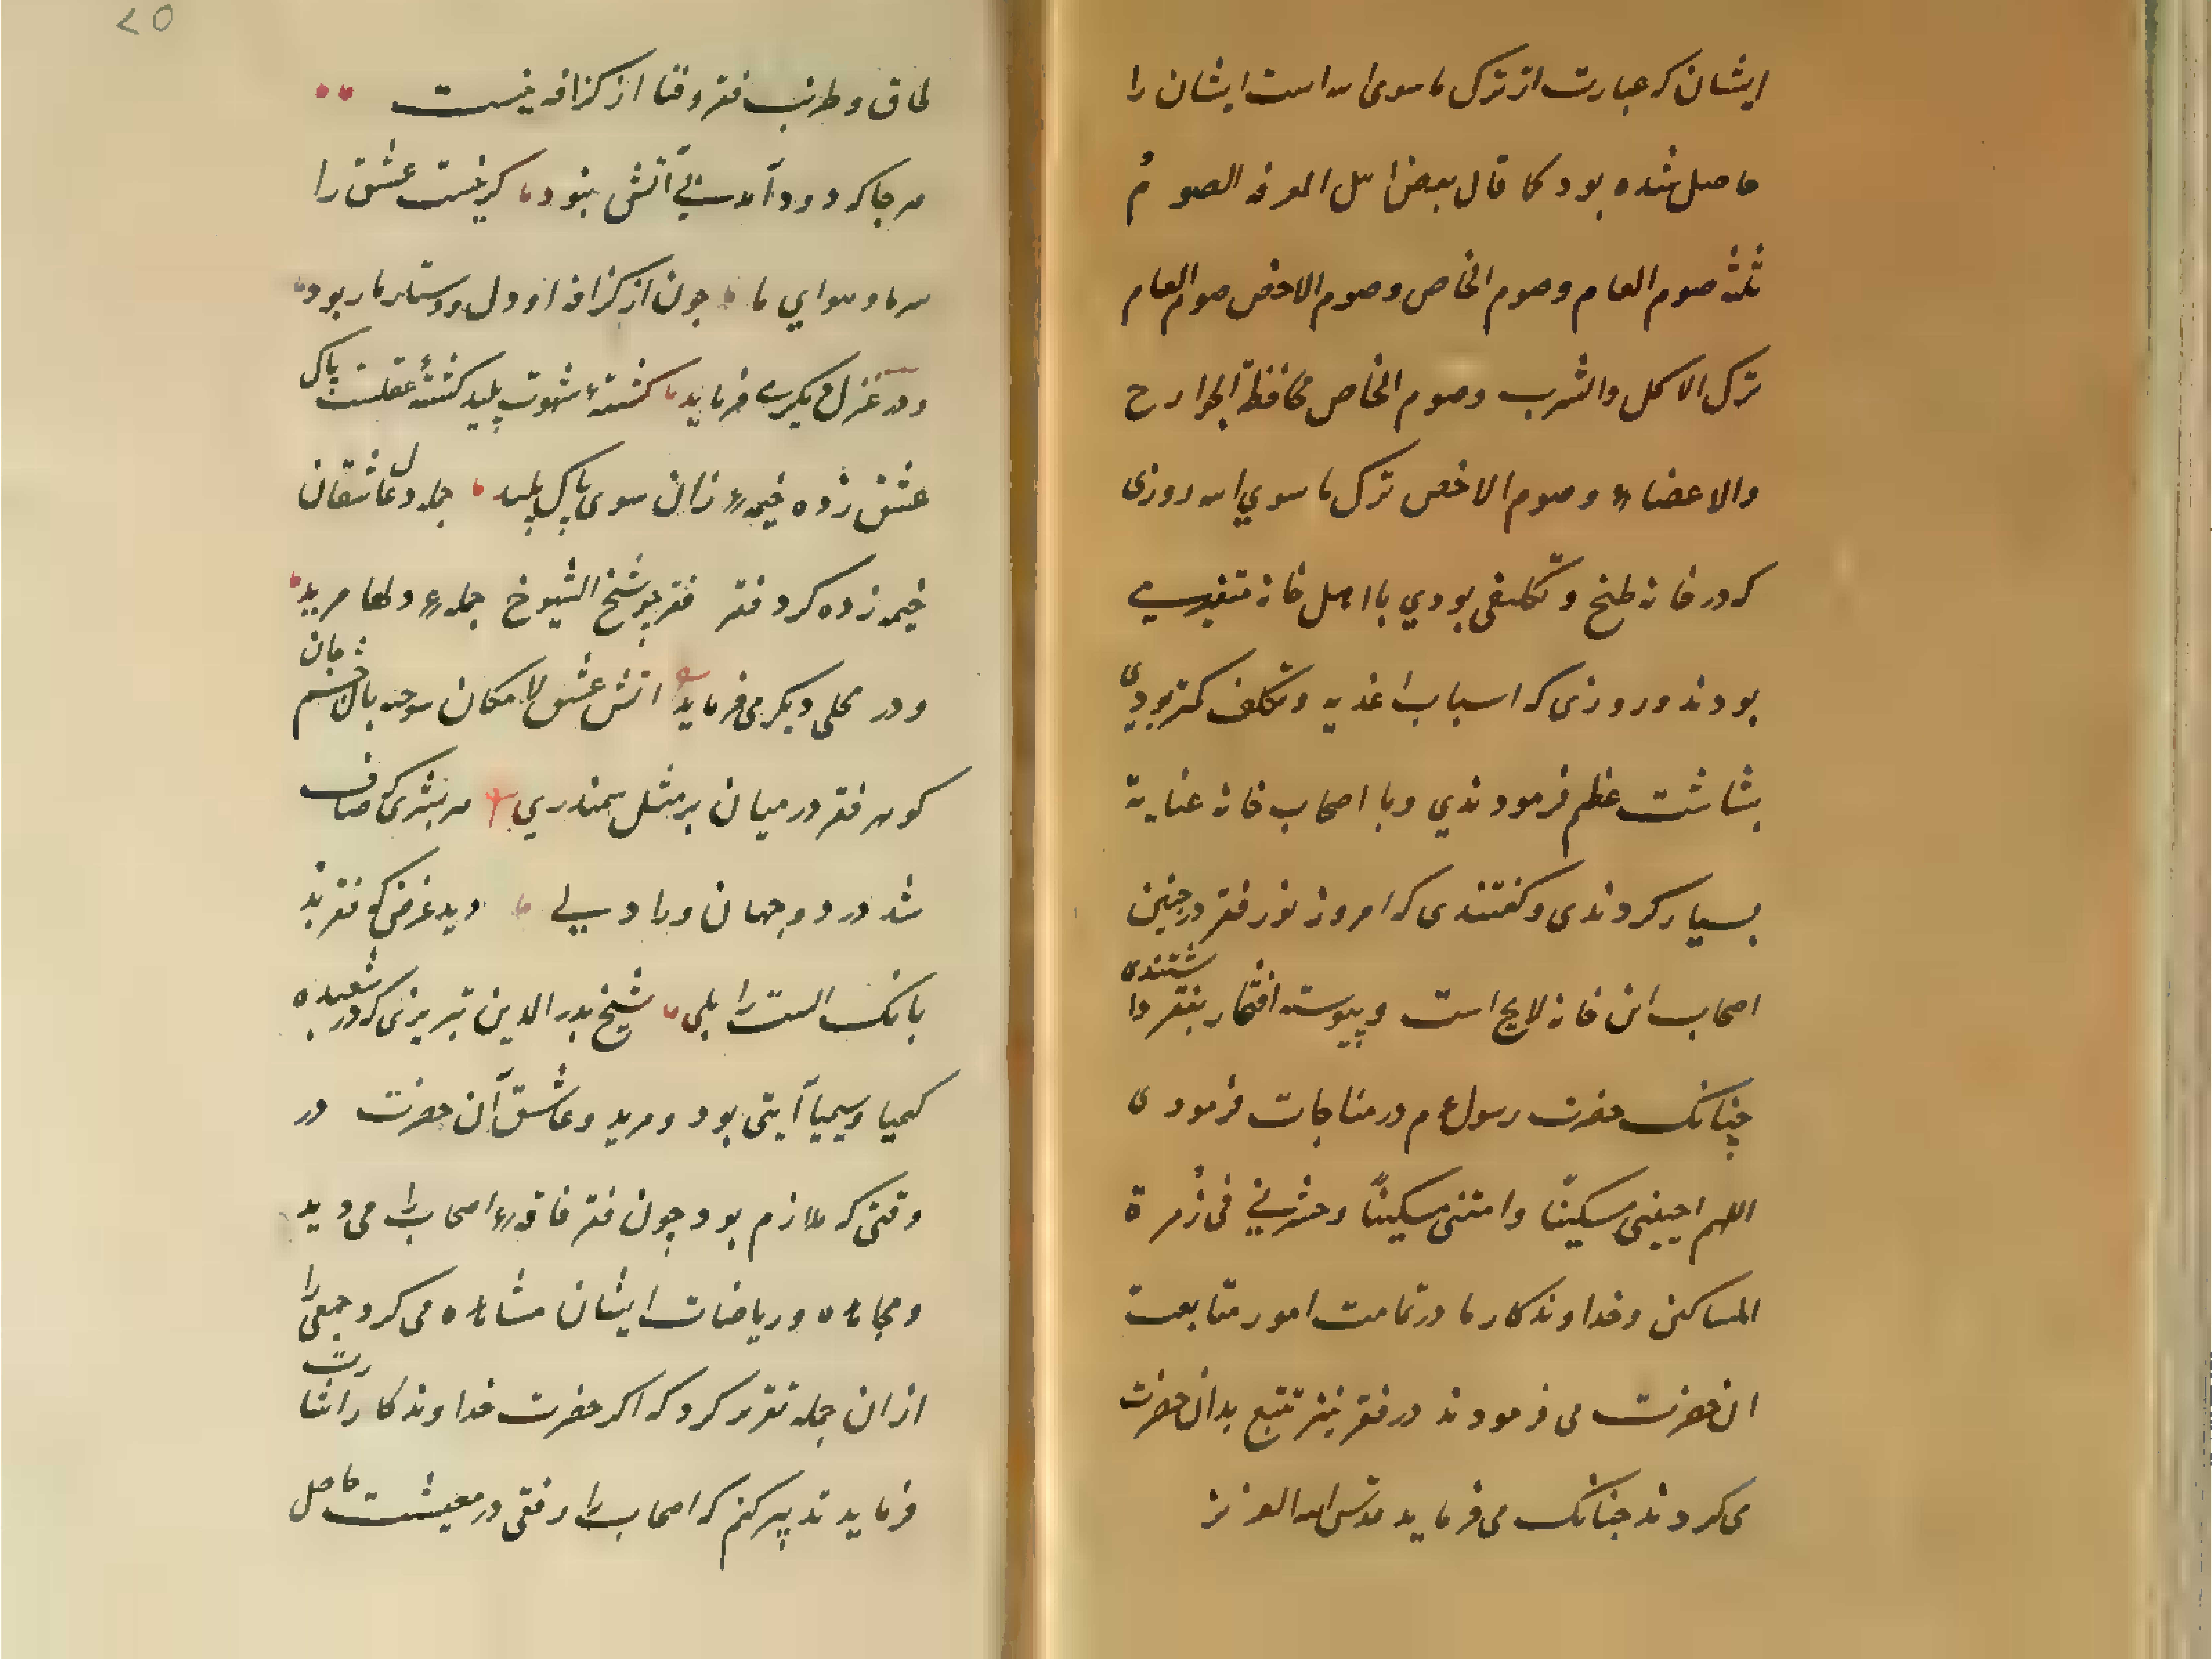 ایشان که عبارت از ترک ما سوی الله است ایشان را
حاصل شده بود کما قال بعض اهل المعرفة الصومُ
ثلثة صوم العام وصوم الخاص وصوم الاخص صوم العام
ترک الاکل والشرب وصوم الخاص محافظة الجوارح
والاعضاء وصوم الاخص ترک ما سوي الله روزی
که در خانه طبخ و تکلفی بودي با اهل خانه متغیر می
بودند و روزی که اسباب اغذیه و تکلف کمتر بودی
بشاشت عظیم فرمودندي وبا اصحاب خانه عنایة
بسیار کردندی و کفتندی که امروز نور فقر در جبین
اصحاب این خانه لایح است و پیوسته افتخار بفقر داشتندی
چنانک حضرت رسول عم در مناجات فرمودی
اللهم احیینی مسکینًا وامتنی مسکینًا وحشرنی فی زُمرة
المساکین وخداوندکار ما در تمامت امور متابعت
ان حضرت می فرمودند در فقر نیز تتبع بدان حضرت
می کردند جنانک می فرماید قدس الله العزیز
۲۵
طاق و طرنب فقر و فنا از کزافه نیست
هر جا که دود آمد بی آتش نبود کر نیست عشق را
سر ما و هوای ما جون از کزافه او دل و دستار ما ربود
ودر غزل دیکر می فرماید کشتهٔ شهوت پلید کشتهٔ عقلست پاک
عشق زده خیمه زان سوی پاک پلید جمله دل عاشقان
خیمه زده کرد فقر فقر چو شیخ الشیوخ جملهٔ دلها مرید
ودر محلی دیکر می فرماید اتش عشق لامکان سوخته پاک جسم جان
کوهر فقر در میان بر مثل سمندری هر بشری که صاف
شد در دو جهان ورا دلی دید غرض که فقر بد
بانک الست را بلی شیخ بدر الدین تبریزی که در شعبده
کیمیا وسیمیا آیتی بود ومرید وعاشق آن حضرت در
وقتی که ملازم بود چون فقر فاقهٔ اصحاب را می دید
ومجاهده وریاضات ایشان مشاهده می کرد جمعی را
ازان جمله تقریر کرد که اکر حضرت خداوندکار اشارت
فرماید تدبیر کنم که اصحاب را رفقی در معیشت حاصل